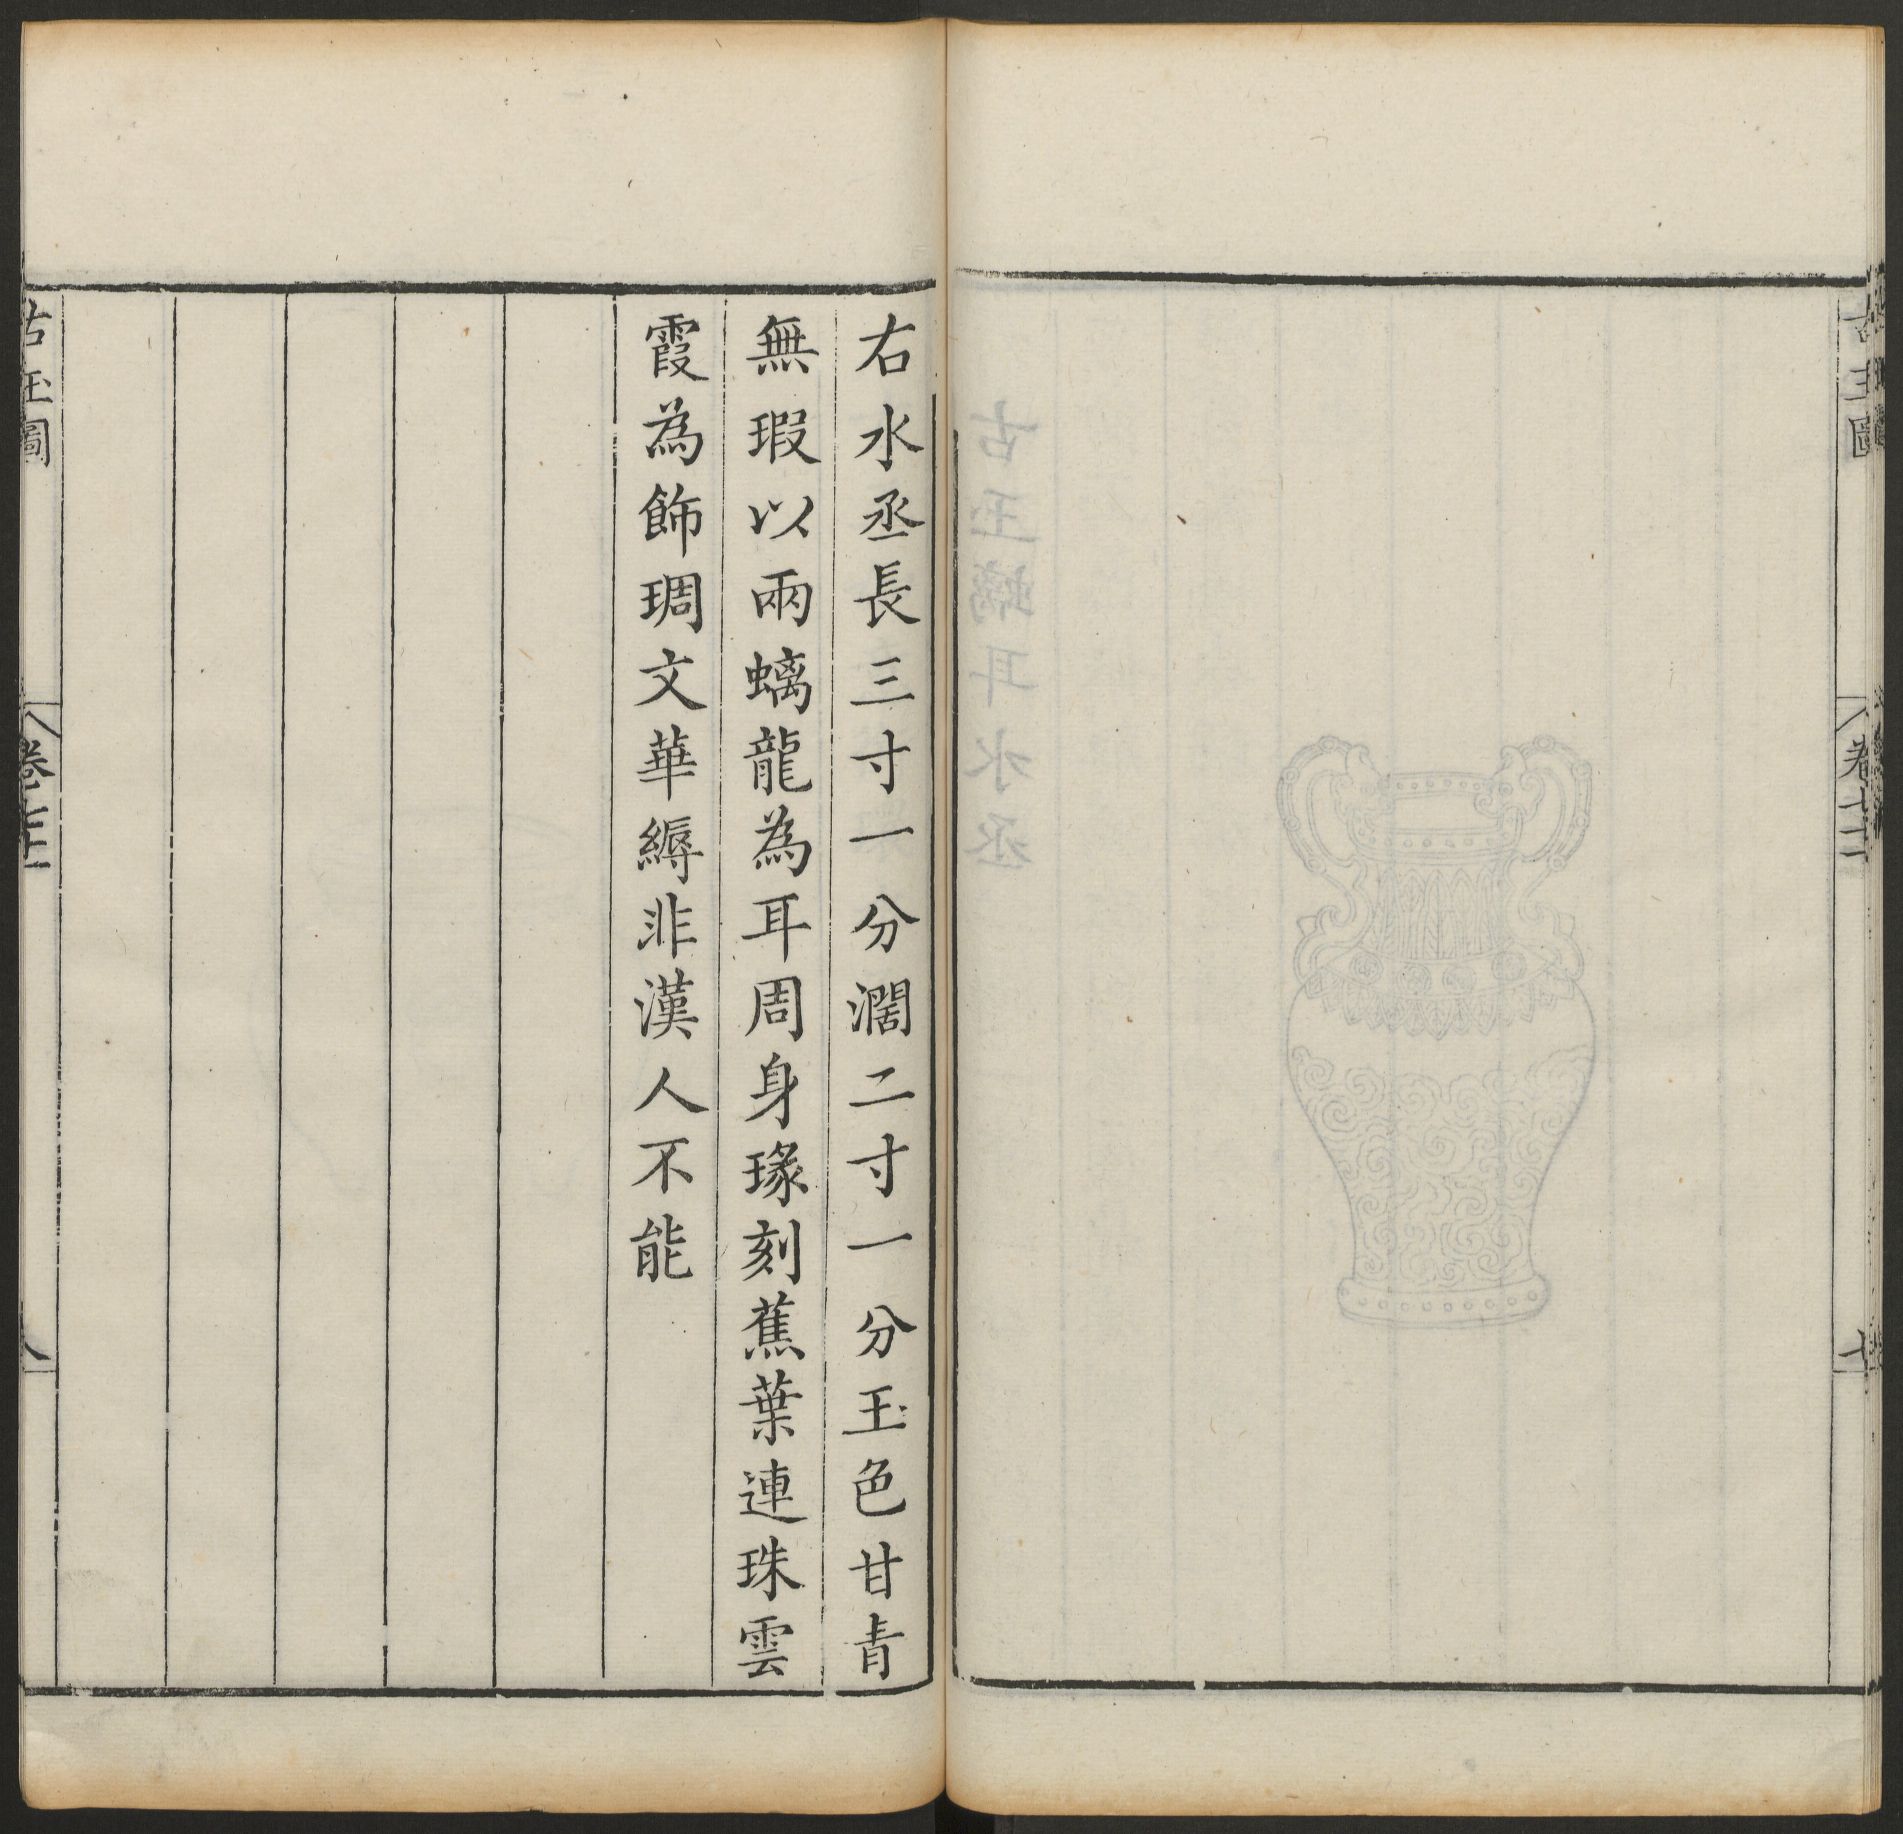 古玉圖
卷七十一
七
古玉螭耳水丞
右水丞長三寸一分濶二寸一分玉色甘青
無瑕以兩螭龍為耳周身瑑刻蕉葉連珠雲
霞為飾琱文華縟非漢人不能
古玉圖
八